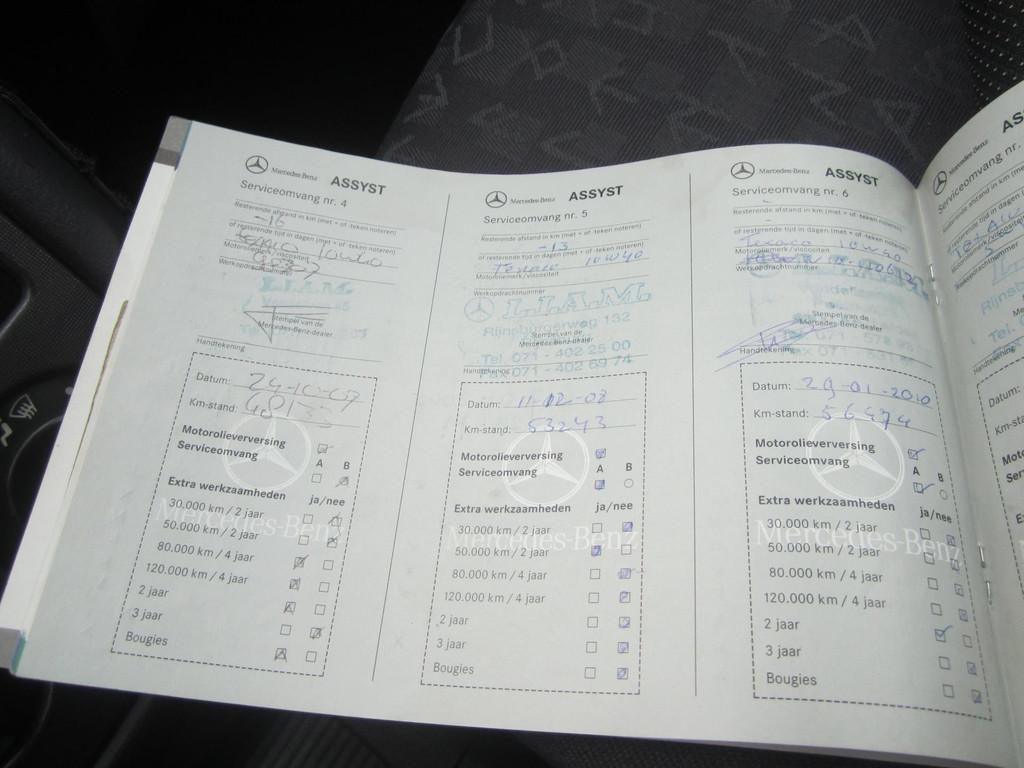 Mercedes-Benz ASSYST
Serviceomvang nr. 4
Resterende afstand in km (met + of -teken noteren)
-16
of resterende tijd in dagen (met + of -teken noteren)
10W40
Motoroliemerk/viscositeit
Werkopdrachtnummer
L.I.A.M.
Stempel van de
Mercedes-Benz-dealer
Handtekening
Datum: 24-10-07
Km-stand: 48133
Motorolieverversing
Serviceomvang A B
Extra werkzaamheden ja/nee
30.000 km / 2 jaar
50.000 km / 2 jaar
80.000 km / 4 jaar
120.000 km / 4 jaar
2 jaar
3 jaar
Bougies
Mercedes-Benz
Mercedes-Benz ASSYST
Serviceomvang nr. 5
Resterende afstand in km (met + of -teken noteren)
-13
of resterende tijd in dagen (met + of -teken noteren)
Texaco 10W40
Motoroliemerk/viscositeit
Werkopdrachtnummer
L.I.A.M.
Rijnsburgerweg 132
Stempel van de
Mercedes-Benz-dealer
Tel. 071 - 402 25 00
Handtekening
Fax 071 - 402 69 74
Datum: 11-02-08
Km-stand: 53243
Motorolieverversing
Serviceomvang A B
Extra werkzaamheden ja/nee
30.000 km / 2 jaar
50.000 km / 2 jaar
80.000 km / 4 jaar
120.000 km / 4 jaar
2 jaar
3 jaar
Bougies
Mercedes-Benz
Mercedes-Benz ASSYST
Serviceomvang nr. 6
Resterende afstand in km (met + of -teken noteren)
-
of resterende tijd in dagen (met + of -teken noteren)
Texaco 10W40
Motoroliemerk/viscositeit
Werkopdrachtnummer
Stempel van de
Mercedes-Benz-dealer
Handtekening
Datum: 29-01-2010
Km-stand: 56474
Motorolieverversing
Serviceomvang A B
Extra werkzaamheden ja/nee
30.000 km / 2 jaar
50.000 km / 2 jaar
80.000 km / 4 jaar
120.000 km / 4 jaar
2 jaar
3 jaar
Bougies
Mercedes-Benz
Mercedes-Benz
Serviceomvang nr.
Resterende afstand in km (met
of resterende tijd in dagen
Motoroliemerk/viscositeit
Werkopdrachtnummer
Rijns
Tel.
Handtekening
Datum:
Km-sta
Moto
Servi
Extra